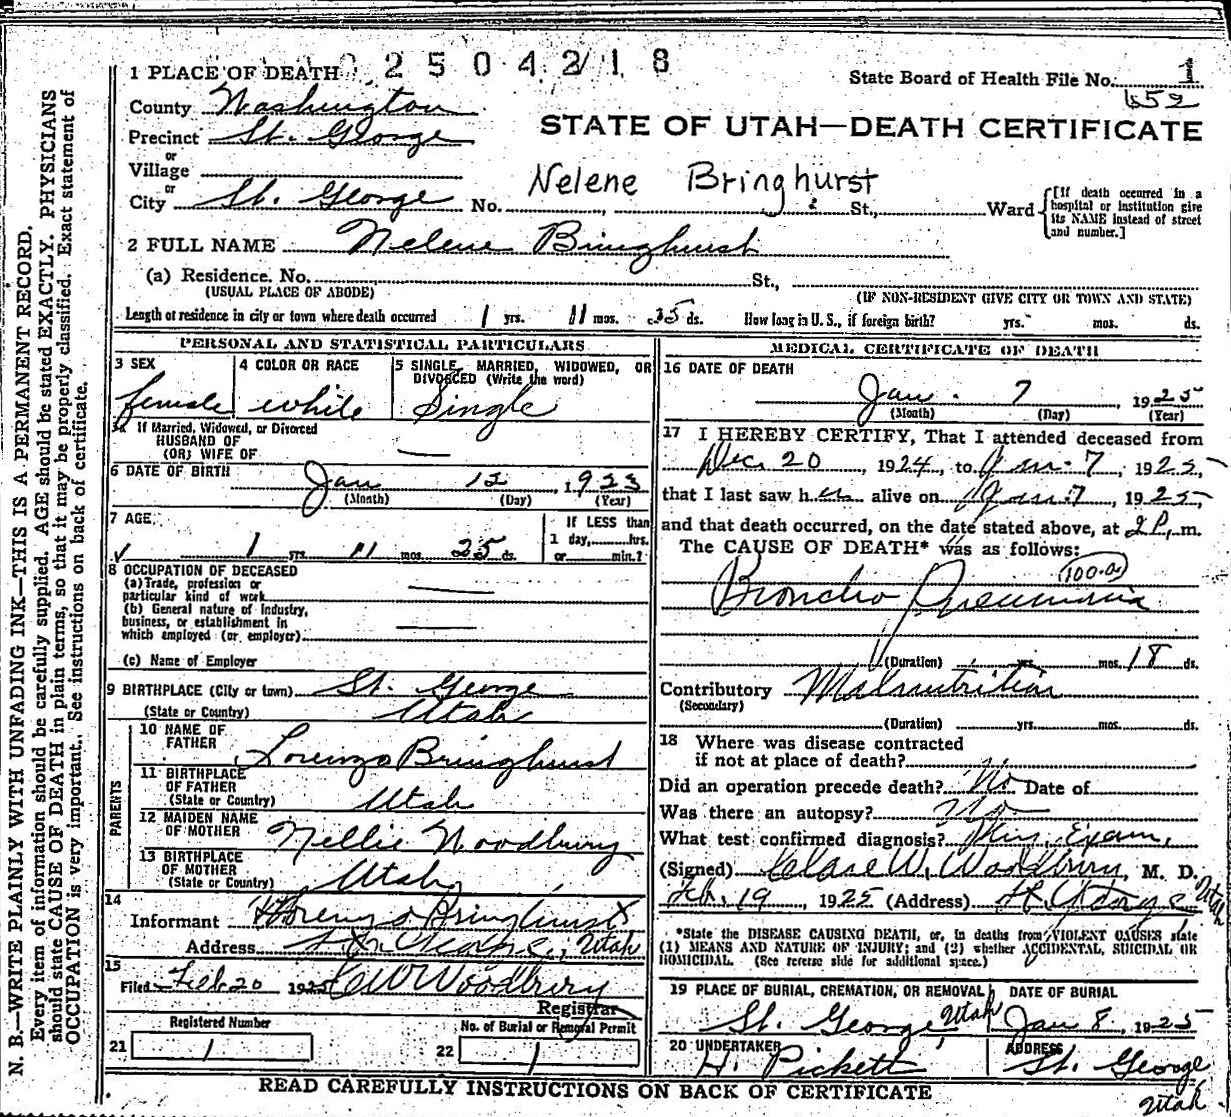 2 5 0 4 2 1 8
State Board of Health File No. 1
1 PLACE OF DEATH
County Washington
Precinct St. George
STATE OF UTAH—DEATH CERTIFICATE
or
Village
or
Nelene Bringhurst
City St. George No. St., Ward
[If death occurred in a hospital or institution give its NAME instead of street and number.]
2 FULL NAME Nelene Bringhurst
(a) Residence. No. St.,
(USUAL PLACE OF ABODE) (IF NON-RESIDENT GIVE CITY OR TOWN AND STATE)
Length of residence in city or town where death occurred 1 yrs. 11 mos. 25 ds. How long in U. S., if foreign birth? yrs. mos. ds.
PERSONAL AND STATISTICAL PARTICULARS
3 SEX
female
4 COLOR OR RACE
white
5 SINGLE, MARRIED, WIDOWED, OR
DIVORCED (Write the word)
Single
If Married, Widowed, or Divorced
HUSBAND OF
(OR) WIFE OF —
6 DATE OF BIRTH
Jan 12 1923
(Month) (Day) (Year)
7 AGE
1 yrs. 11 mos. 25 ds.
If LESS than
1 day, hrs.
or min.?
8 OCCUPATION OF DECEASED
(a) Trade, profession or
particular kind of work —
(b) General nature of Industry,
business, or establishment in
which employed (or employer) —
(c) Name of Employer
9 BIRTHPLACE (City or town) St. George
(State or Country) Utah
PARENTS
10 NAME OF
FATHER Lorenzo Bringhurst
11 BIRTHPLACE
OF FATHER
(State or Country) Utah
12 MAIDEN NAME
OF MOTHER Nellie Woodbury
13 BIRTHPLACE
OF MOTHER
(State or Country) Utah
14
Informant Lorenzo Bringhurst
Address St. George, Utah
15
Filed Feb 20 1925 C W Woodbury
Registrar
Registered Number
21 1
No. of Burial or Removal Permit
22 1
MEDICAL CERTIFICATE OF DEATH
16 DATE OF DEATH
Jan. 7, 1925
(Month) (Day) (Year)
17 I HEREBY CERTIFY, That I attended deceased from
Dec. 20, 1924, to Jan. 7, 1925,
that I last saw her alive on Jan. 7, 1925
and that death occurred, on the date stated above, at 2 P. m.
The CAUSE OF DEATH* was as follows:
Broncho Pneumonia
(Duration) yrs. mos. 18 ds.
Contributory Malnutrition
(Secondary)
(Duration) yrs. mos. ds.
18 Where was disease contracted
if not at place of death?
Did an operation precede death? No Date of
Was there an autopsy? No
What test confirmed diagnosis? Phys. Exam.
(Signed) Clare W. Woodbury, M. D.
Feb. 19, 1925 (Address) St. George Utah
*State the DISEASE CAUSING DEATH, or, in deaths from VIOLENT CAUSES state
(1) MEANS AND NATURE OF INJURY; and (2) whether ACCIDENTAL, SUICIDAL OR
HOMICIDAL. (See reverse side for additional space.)
19 PLACE OF BURIAL, CREMATION, OR REMOVAL
St. George, Utah
DATE OF BURIAL
Jan 8, 1925
20 UNDERTAKER
H. Pickett
ADDRESS
St. George
Utah
READ CAREFULLY INSTRUCTIONS ON BACK OF CERTIFICATE
N. B.—WRITE PLAINLY WITH UNFADING INK—THIS IS A PERMANENT RECORD.
Every item of information should be carefully supplied. AGE should be stated EXACTLY. PHYSICIANS
should state CAUSE OF DEATH in plain terms, so that it may be properly classified. Exact statement of
OCCUPATION is very important. See instructions on back of certificate.